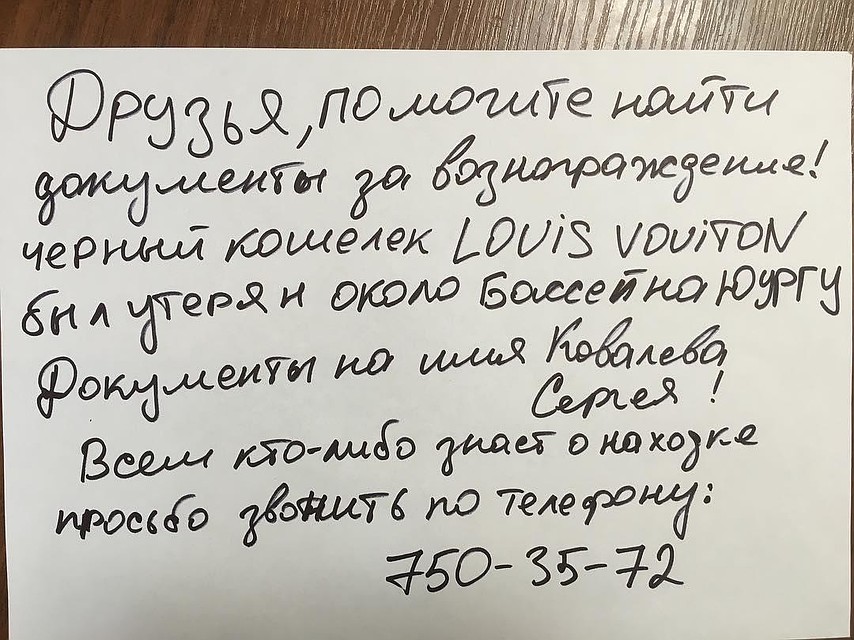 Друзья, помогите найти
документы за вознаграждение!
черный кошелек LOUIS VOUITON
был утерян около Бассейна ЮУРГУ
Документы на имя Ковалева
Сергея!
Всем кто-либо знает о находке
просьбо звонить по телефону:
750-35-72